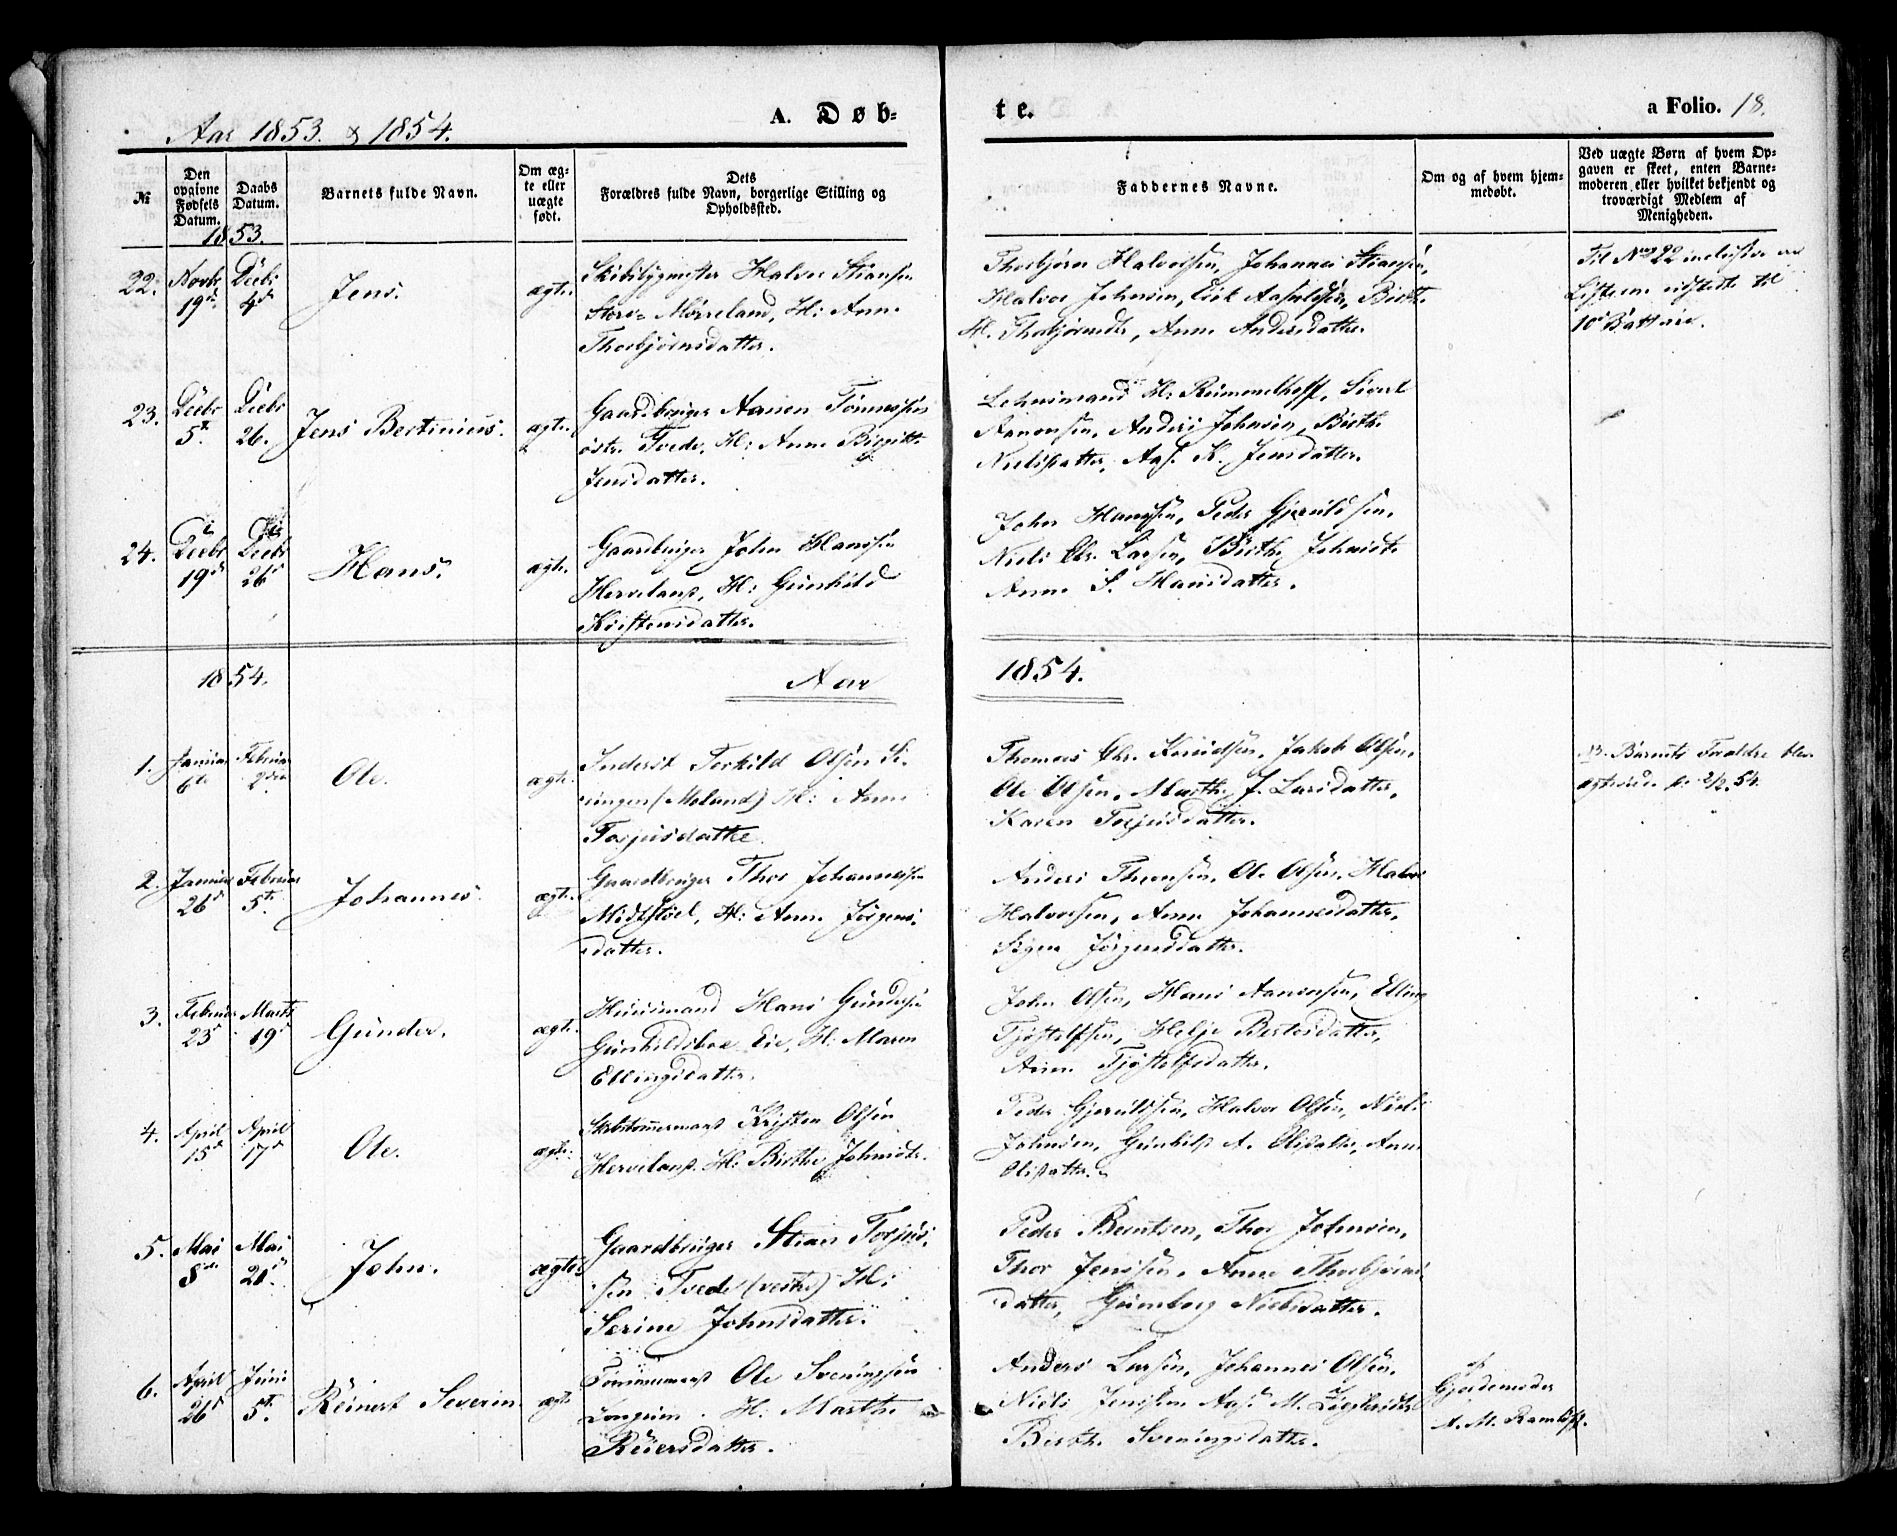 Aar 1853. & 1854.
A. Døb-
te.
a Folio. 18.
№
Den opgivne Fødsels Datum.
Daabs Datum.
Barnets fulde Navn.
Om æg-
te eller
uægte
født.
Dets
Forældres fulde Navn, borgerlige Stilling og
Opholdssted.
Faddernes Navne.
Om og af hvem hjem-
medøbt.
Ved uægte Børn af hvem Op-
gaven er skeet, enten Barne-
moderen eller hvilket bekjendt og
troværdigt Medlem af
Menigheden.
1853.
22. Novbr 19de Decbr 4de
Jens.
ægte.
Skibsbygmester Halvor Stiansen
Store Mørreland, H: Anne
Thorbjørnsdatter.
Thorbjørn Halvorsen, Johannes Stiansen,
Halvor Johnsen, Aasulfsen, Birthe
M. Thorbjørnsdr, Anne Andersdatter.
Til No 22 inclusive
Listerne
10
23. Decbr 5te Decbr 26.
Jens Bertinius.
ægte.
Gaardbruger Aanen Tønnessen
østre Tvede, H: Anne Birgitte
Jensdatter.
Lehnsmand H: Rummelhoff, Sivert
Aanonsen, Anders Johnsen, Birthe
Nielsdatter, Aas. K. Jensdatter.
24. Decbr 19de Decbr 26d
Hans.
ægte.
Gaardbruger John Hanssen
Herveland, H: Gunhild
Kristensdatter.
John Hanssen, Peder Gjeruldsen,
Niels Chr. Larsen, Birthe Johnsdr
Anne S. Hansdatter.
1854.
Aar 1854.
1. Januar 6te Februar 2den
Ole.
ægte.
Inderst Terkild Olsen Si-
ringen (Moland) H: Anne
Torjusdatter.
Thomas Chr. Knudsen, Jakob Olsen,
Ole Olsen, Marthe J. Larsdatter,
Karen Torjusdatter.
NB. Barnets Forældre blev
ægteviede 2/2 54.
2. Januar 26d Februar 5te
Johannes.
ægte.
Gaardbruger Thor Johannessen
Midtstøel, H: Anne Jørgens-
datter.
Anders Thorensen, Ole Olsen, Halvor
Halvorsen, Anne Johannesdatter,
Signe Jørgensdatter.
3. Februar 23d Marts 19d
Gunder.
ægte.
Huusmand Hans Gundersen
Gunhildsboe Eie, H: Maren
Ellingsdatter.
John Olsen, Hans Aanonsen, Elling
Tjøstolfsen, Helje Bertesdatter,
Anne Tjøstolfsdatter.
4. April 15d April 17d
Ole.
ægte.
Skibstømmermand Kristen Olsen
Herveland H: Birthe Johnsdtr.
Peder Gjeruldsen, Halvor Olsen, Niels
Johnsen, Gunhild A. Olsdatter, Anne
Olsdatter.
5. Mai 8de Mai 21d
John.
ægte.
Gaardbruger Stian Torjus-
sen Tvede (vestre) H:
Serine Johnsdatter.
Peder Berntsen, Thor Johnsen,
Thor Jenssen, Anne Thorbjørns-
datter, Gunborg Nielsdatter.
6. April 26d Juni 5te
Reinert Severin
ægte
Tømmermand Ole Sveningsen
Longum. H: Marthe
Reiersdatter.
Anders Larsen, Johannes Olsen,
Niels Jenssen, Aas. M.
Birthe Sveningsdatter.
af
Gjordemoder
A. M. Ramleff.